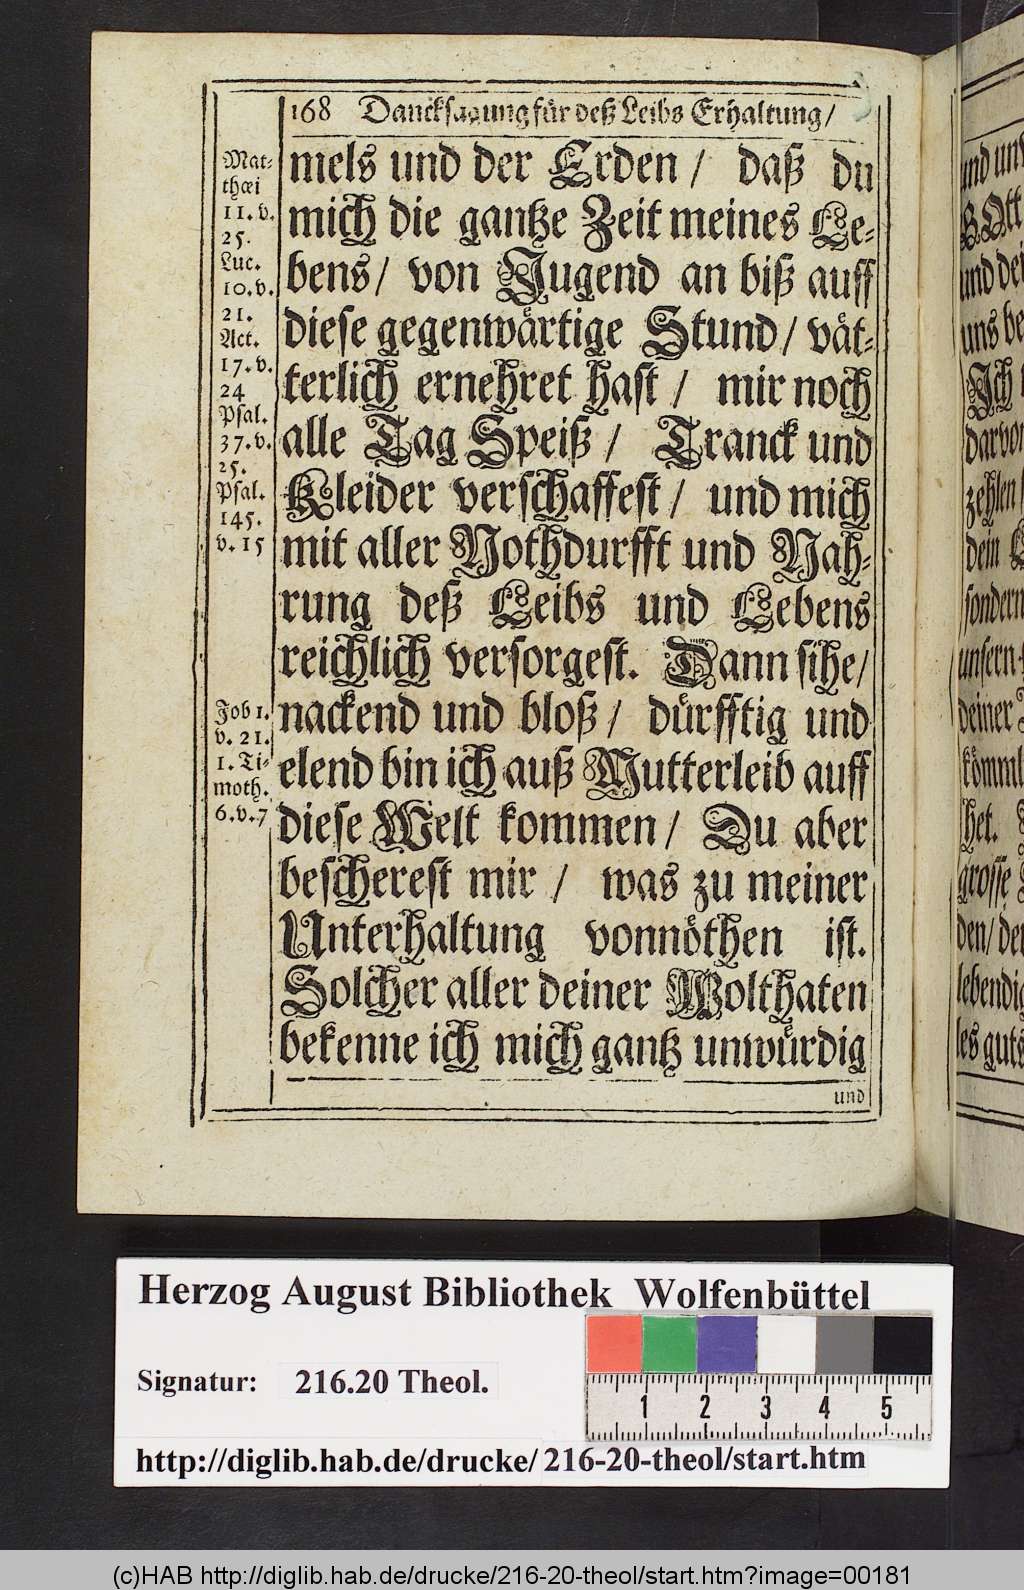 168 Dancksagung für deß Leibs Erhaltung/
Mat-
thæi
11. v.
25.
Luc.
10. v.
21.
Act.
17. v.
24
Psal.
37. v.
25.
Psal.
145.
v. 15
Job 1.
v. 21.
1. Ti-
moth.
6. v. 7
mels und der Erden / daß du
mich die gantze Zeit meines Le-
bens/ von Jugend an biß auff
diese gegenwärtige Stund/ vät-
terlich ernehret hast / mir noch
alle Tag Speiß / Tranck und
Kleider verschaffest / und mich
mit aller Nothdurfft und Nah-
rung deß Leibs und Lebens
reichlich versorgest. Dann sihe/
nackend und bloß / dürfftig und
elend bin ich auß Mutterleib auff
diese Welt kommen / Du aber
bescherest mir / was zu meiner
Unterhaltung vonnöthen ist.
Solcher aller deiner Wolthaten
bekenne ich mich gantz unwürdig
und
GOtt
und dei
uns be
Ich
darvon
zehlen
dein
sondern
unsern
deiner
kömml
het.
grosse
den/ de
lebendig
les guts
Herzog August Bibliothek Wolfenbüttel
Signatur: 216.20 Theol.
1 2 3 4 5
http://diglib.hab.de/drucke/ 216-20-theol/start.htm
(c)HAB http://diglib.hab.de/drucke/216-20-theol/start.htm?image=00181